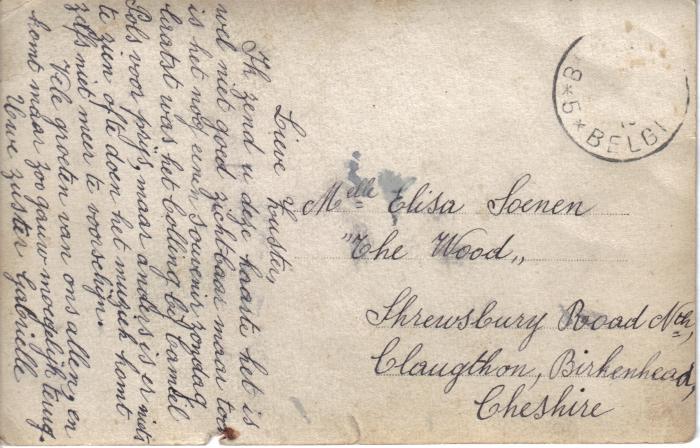 Lieve Zuster,
Ik zend u deze kaarte het is
wel niet god zichtbaar maar toch
is het nog een souvenir zondag
laatst was het bolling bij Camiel
Pols voor prijs, maar anders is er niets
te zien ofte doen het muziek komt
zelfs niet meer te voorschijn.
Vele groeten van ons allen, en
komt maar zoo gauw moegelijk terug.
Uwe zuster Gabrielle
Melle Elisa Soenen
"The Wood„
Shrewsbury Road Nth,
Claugthon, Birkenhead,
Cheshire
8*5*BELGI